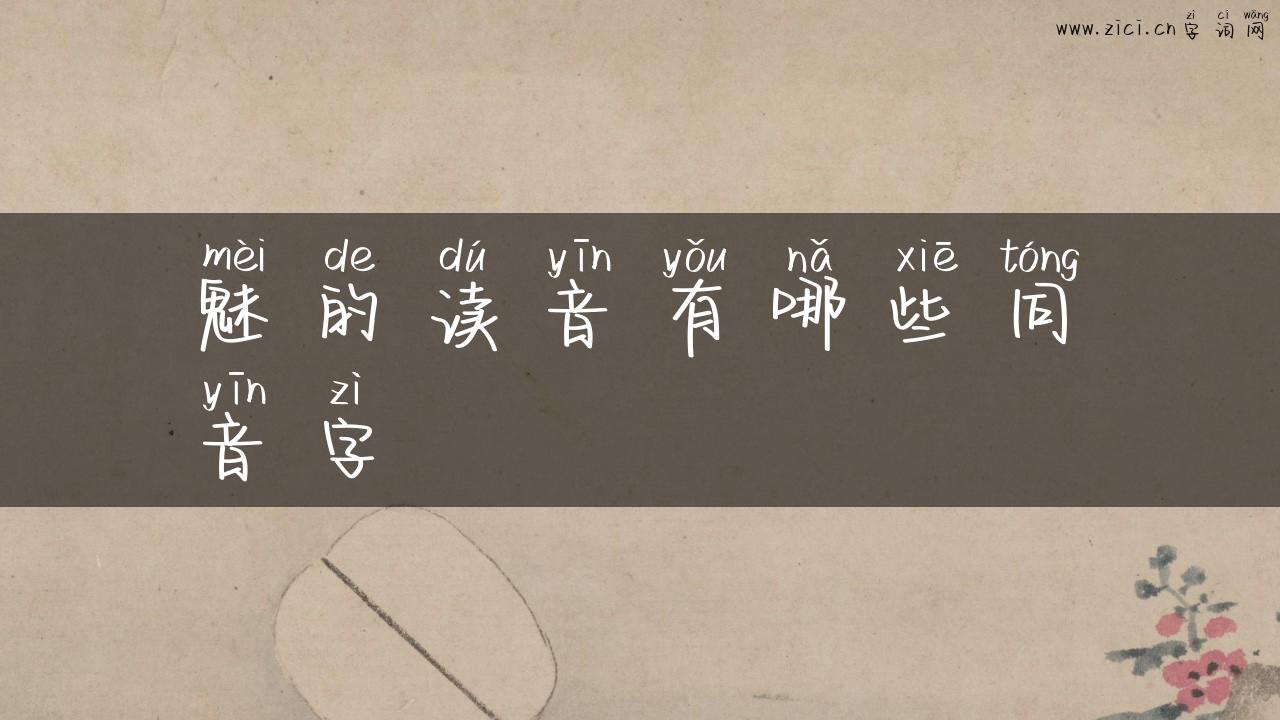 zì cí wǎng
www.zici.cn字词网
mèi de dú yīn yǒu nǎ xiē tóng
魅的读音有哪些同
yīn zì
音字